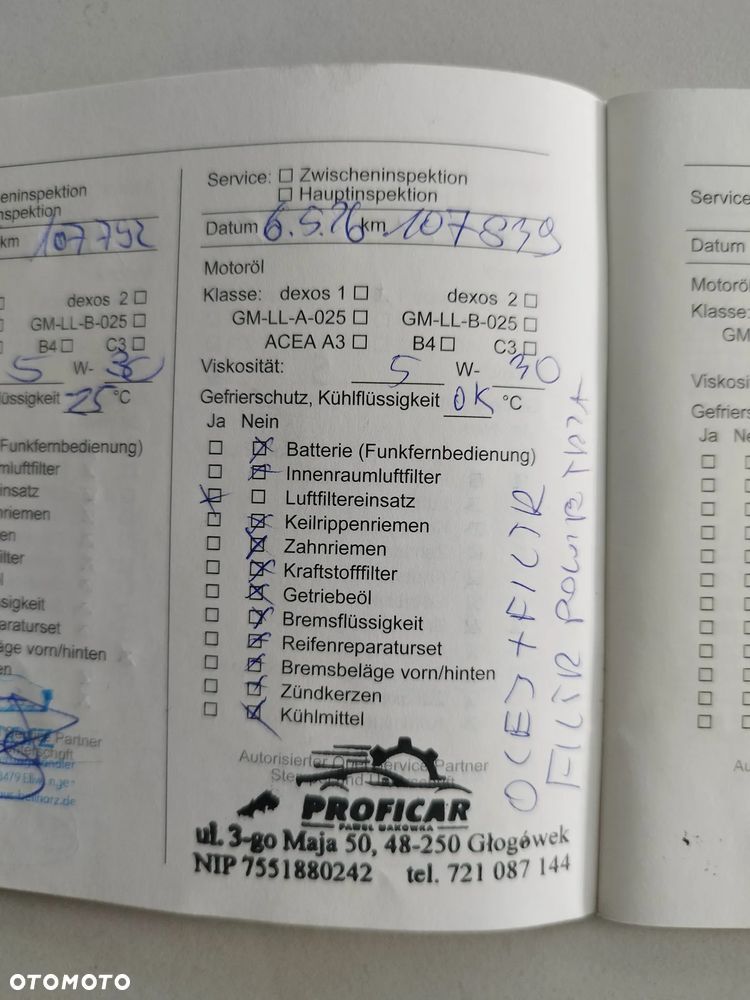 eninspektion
nspektion
km 107792
dexos 2
GM-LL-B-025
B4 C3
5 W- 30
üssigkeit 25 °C
Funkfernbedienung)
mluftfilter
insatz
nriemen
en
ilter
l
sigkeit
araturset
läge vorn/hinten
en
Partner
Service: Zwischeninspektion
Hauptinspektion
Datum 6.5.26 km 107839
Motoröl
Klasse: dexos 1 dexos 2
GM-LL-A-025 GM-LL-B-025
ACEA A3 B4 C3
Viskosität: 5 W- 30
Gefrierschutz, Kühlflüssigkeit OK °C
Ja Nein
Batterie (Funkfernbedienung)
Innenraumluftfilter
Luftfiltereinsatz
Keilrippenriemen
Zahnriemen
Kraftstofffilter
Getriebeöl
Bremsflüssigkeit
Reifenreparaturset
Bremsbeläge vorn/hinten
Zündkerzen
Kühlmittel
OLEJ + FILTR
FILTR POWIETRZA
Autorisierter Opel Service Partner
PROFICAR
PAWEŁ MAKOWKA
ul. 3-go Maja 50, 48-250 Głogówek
NIP 7551880242 tel. 721 087 144
Service
Datum
Motoröl
Klasse:
GM
Viskosi
Gefriers
Ja Ne
Au
OTOMOTO